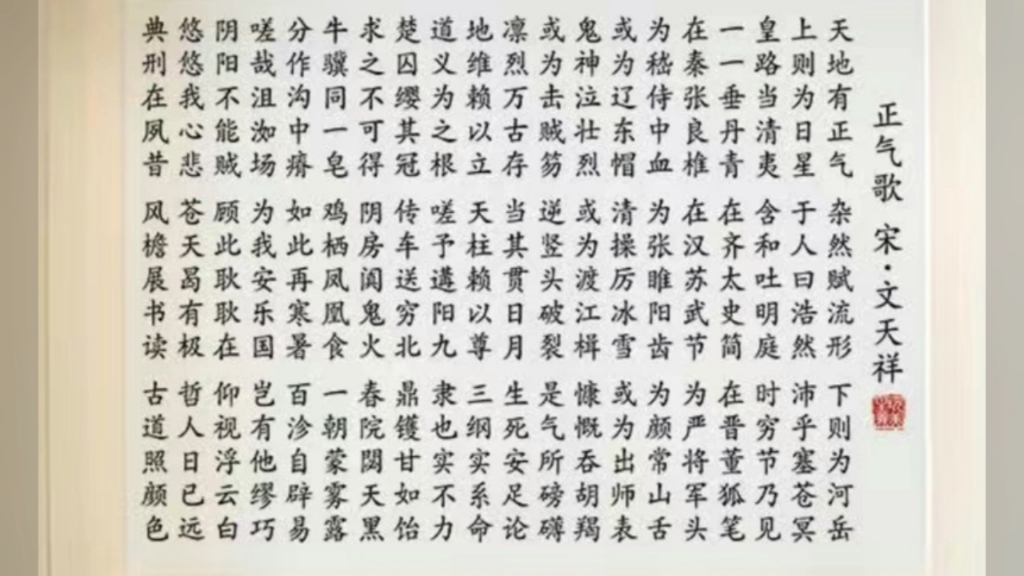 正气歌 宋·文天祥
天地有正气 杂然赋流形 下则为河岳
上则为日星 于人曰浩然 沛乎塞苍冥
皇路当清夷 含和吐明庭 时穷节乃见
一一垂丹青 在齐太史简 在晋董狐笔
在秦张良椎 在汉苏武节 为严将军头
为嵇侍中血 为张睢阳齿 为颜常山舌
或为辽东帽 清操厉冰雪 或为出师表
鬼神泣壮烈 或为渡江楫 慷慨吞胡羯
或为击贼笏 逆竖头破裂 是气所磅礴
凛烈万古存 当其贯日月 生死安足论
地维赖以立 天柱赖以尊 三纲实系命
道义为之根 嗟予遘阳九 隶也实不力
楚囚缨其冠 传车送穷北 鼎镬甘如饴
求之不可得 阴房阒鬼火 春院天黑
牛骥同一皂 鸡栖凤凰食 一朝蒙雾露
分作沟中瘠 如此再寒暑 百沴自辟易
嗟哉沮洳场 为我安乐国 岂有他缪巧
阴阳不能贼 顾此耿耿在 仰视浮云白
悠悠我心悲 苍天曷有极 哲人日已远
典刑在夙昔 风檐展书读 古道照颜色